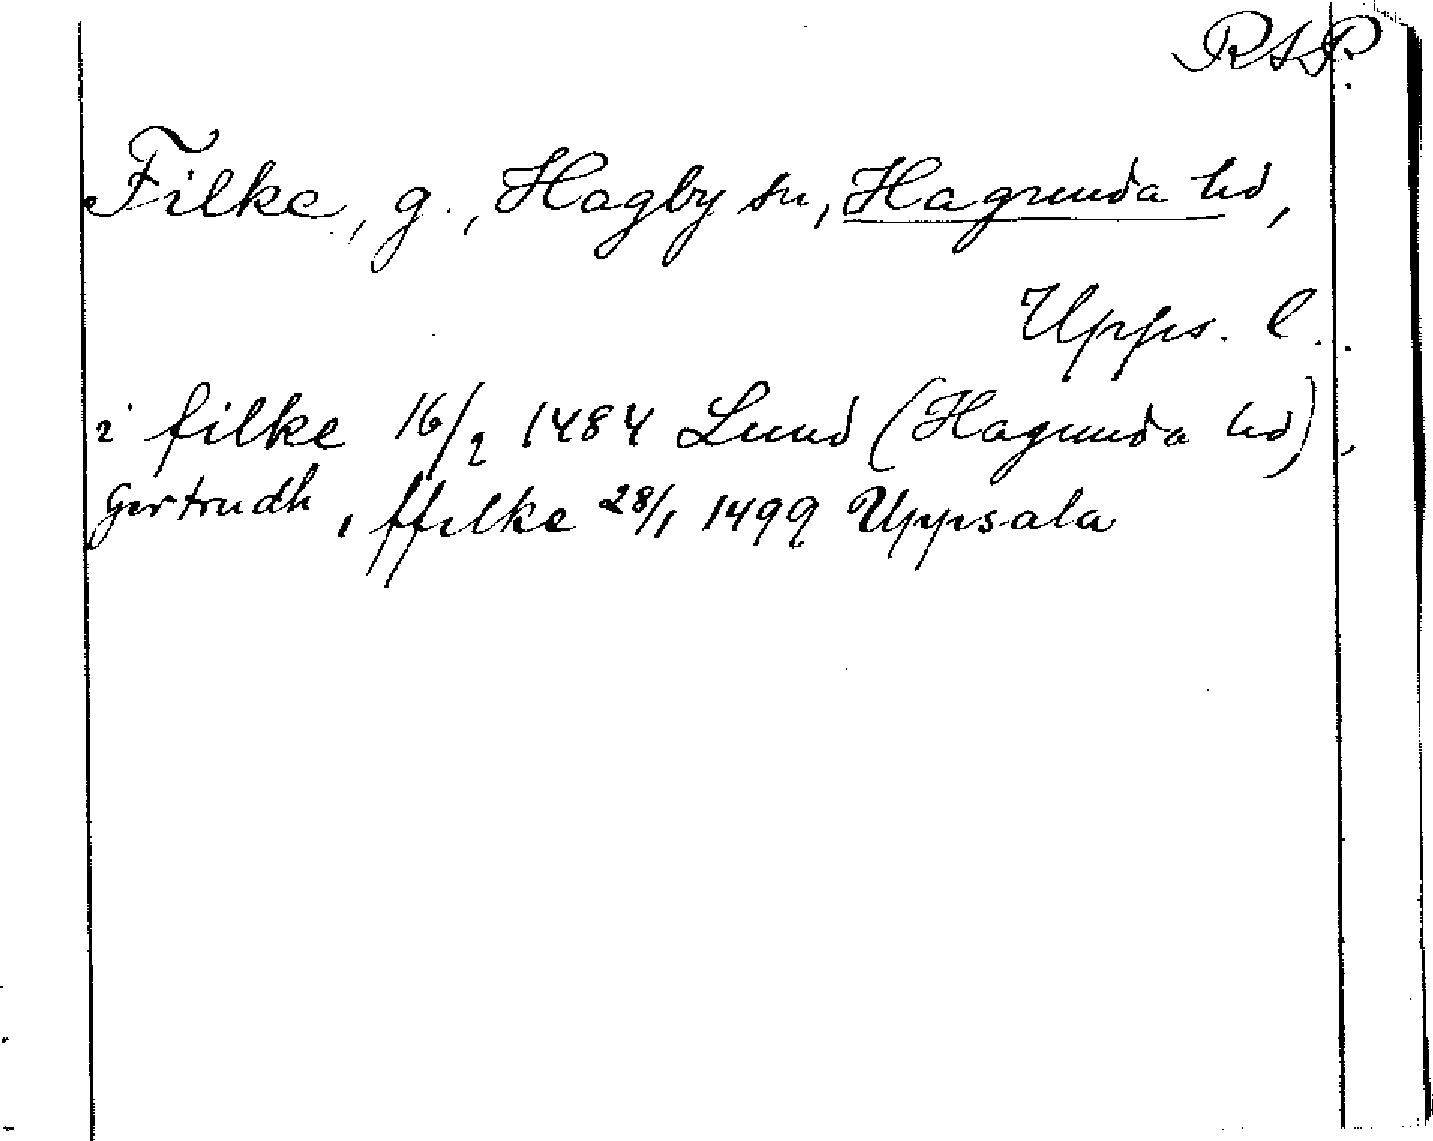 RAP.
Filke, g., Hagby sn, Hagunda hd,
Upps. l.
i filke 16/2 1484 Lund (Hagunda hd),
Gertrudh, ffilke 28/1 1499 Uppsala